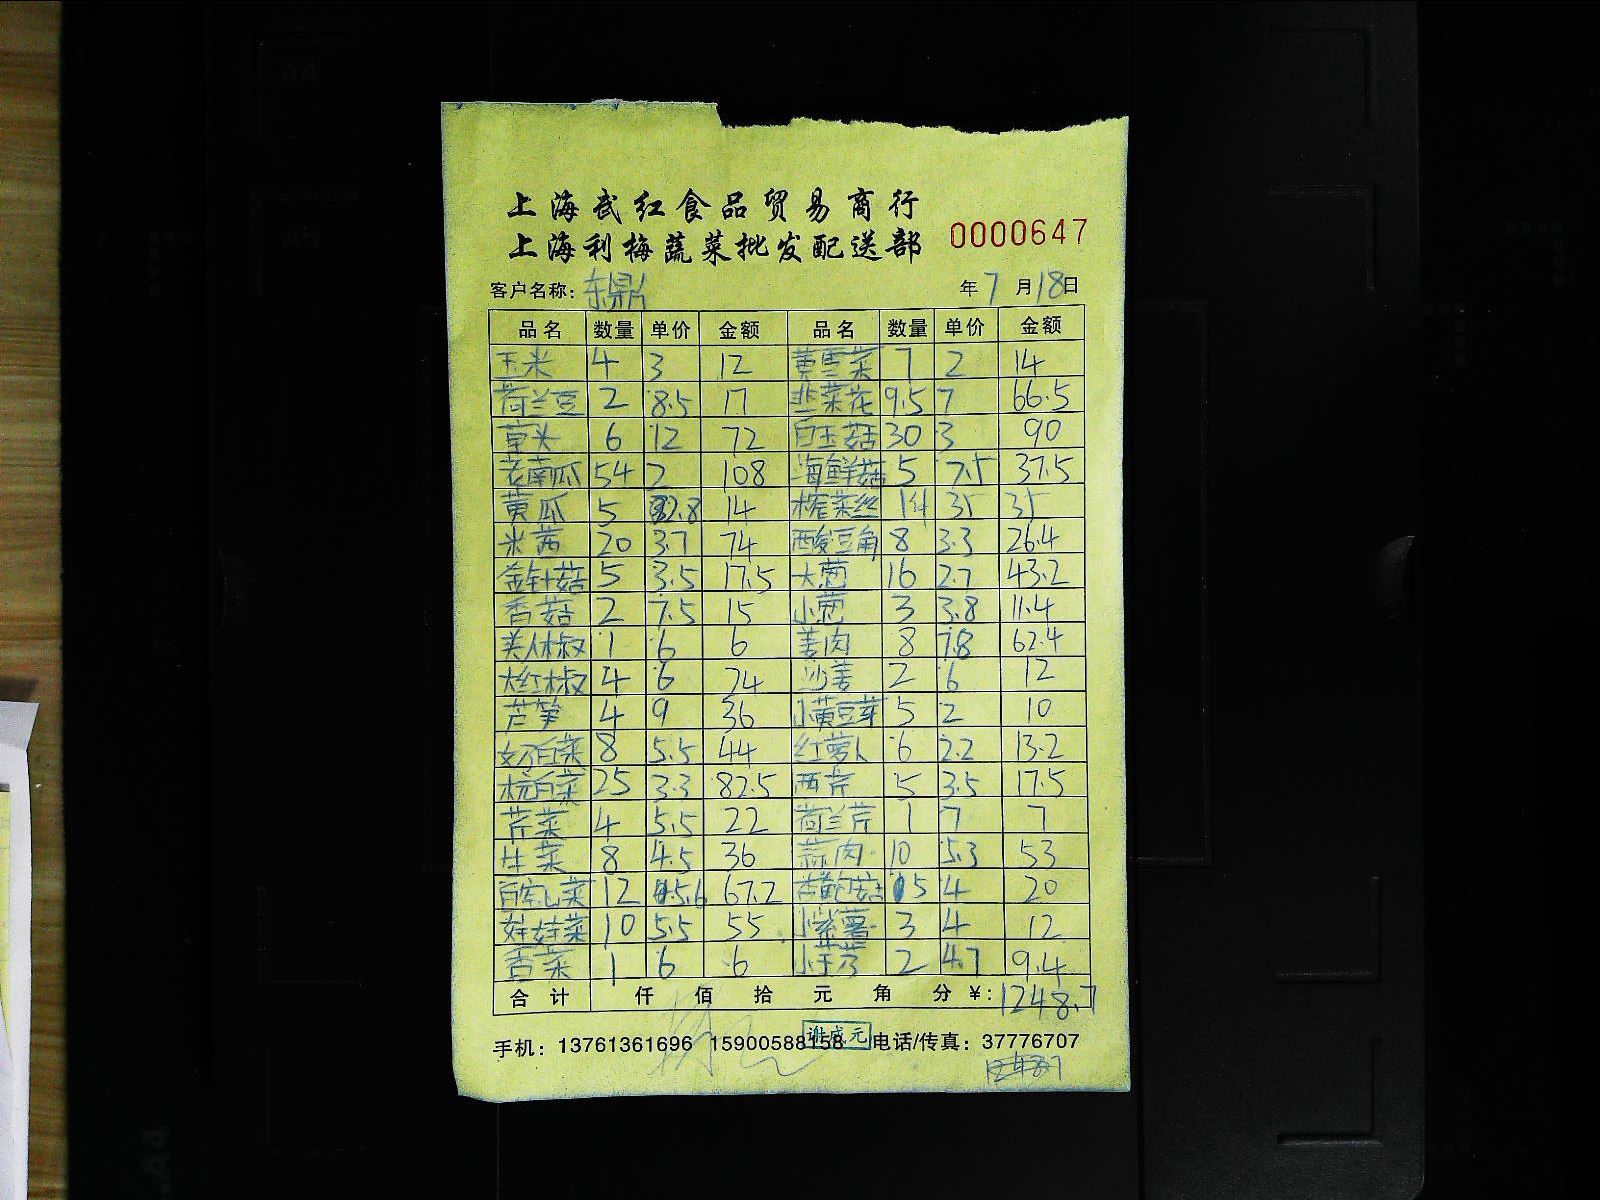 上海武红食品贸易商行
上海利梅蔬菜批发配送部 0000647
客户名称：东鼎 年7月18日
品名 数量 单价 金额 品名 数量 单价 金额
玉米 4 3 12 黄雪菜 7 2 14
荷兰豆 2 8.5 17 韭菜花 9.5 7 66.5
草头 6 12 72 白玉菇 30 3 90
老南瓜 54 2 108 海鲜菇 5 7.5 37.5
黄瓜 5 2.8 14 榨菜丝 14 35 35
米苋 20 3.7 74 酸豆角 8 3.3 26.4
金针菇 5 3.5 17.5 大葱 16 2.7 43.2
香菇 2 7.5 15 小葱 3 3.8 11.4
美人椒 1 6 6 姜肉 8 7.8 62.4
大红椒 4 6 24 沙姜 2 6 12
芦笋 4 9 36 小黄豆芽 5 2 10
奶白菜 8 5.5 44 红萝卜 6 2.2 13.2
杭白菜 25 3.3 82.5 西芹 5 3.5 17.5
芹菜 4 5.5 22 荷兰芹 1 7 7
生菜 8 4.5 36 蒜肉 10 5.3 53
12 5.6 67.2 杏鲍菇 5 4 20
娃娃菜 10 5.5 55 小紫薯 3 4 12
香菜 1 6 6 小芋艿 2 4.7 9.4
合计 仟 佰 拾 元 角 分 ¥：1248.7
手机：13761361696 15900588158 电话/传真：37776707
谢成元
1248.7
A4